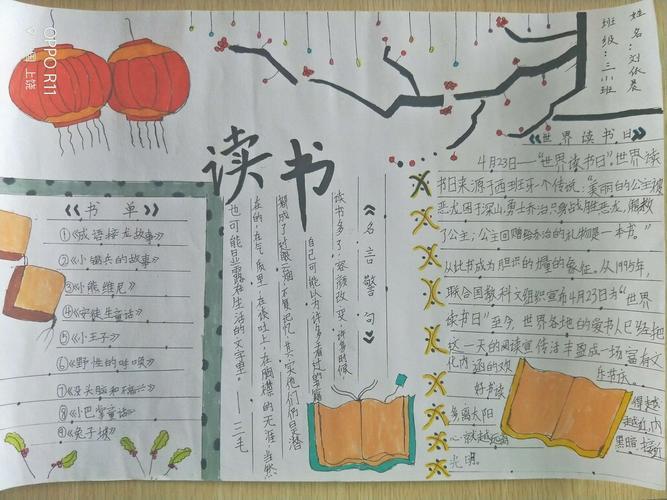 OPPO R11
上饶
读书
姓名：刘依晨
班级：三小班
《书单》
①《成语接龙故事》
②《小锡兵的故事》
③《小熊维尼》
④《安徒生童话》
⑤《小王子》
⑥《野性的呼唤》
⑦《没头脑和不高兴》
⑧《小巴掌童话》
⑨《兔子坡》
《名言警句》
读书多了，容颜改变，许多时候，
自己可能以为许多看过的书籍
都成了过眼云烟，不复记忆，其实他们仍是潜
在的，在气质里，在谈吐上，在胸襟的无涯，当然
也可能显露在生活的文字里。——三毛
《世界读书日》
4月23日——“世界读书日”。世界读
书日来源于西班牙一个传说：“美丽的公主被
恶龙困于深山，勇士乔治只身战胜恶龙，解救
了公主；公主回赠给乔治的礼物是一本书。”
从此书成为胆识和力量的象征。从1995年，
联合国教科文组织宣布4月23日为“世界
读书日”至今，世界各地的爱书人已经把
这一天的阅读宣传活丰盈成一场富有文
化内涵的欢
乐节庆。
好书读
得越
多离太阳
越近，内
心就越远离
黑暗，接近
光明。